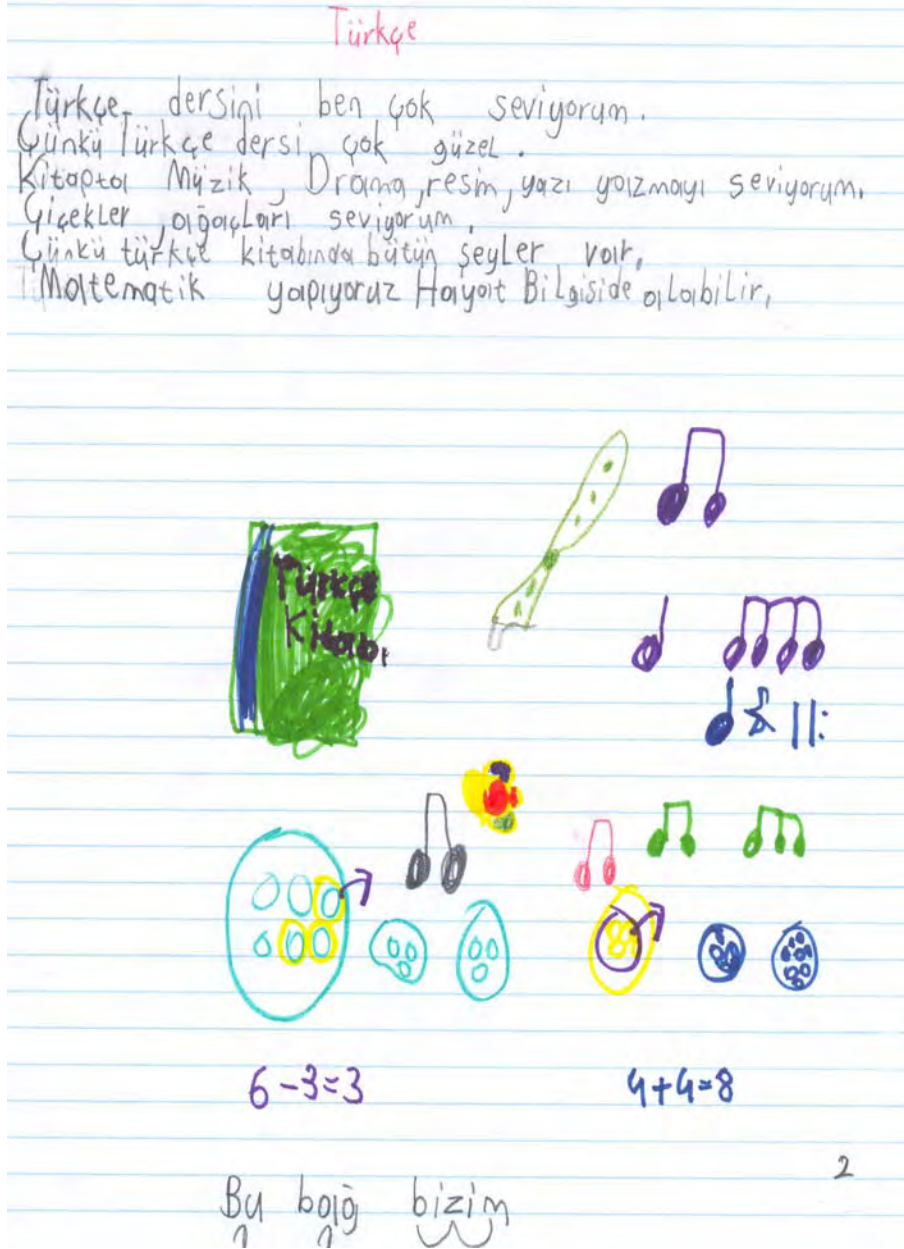 Türkçe
Türkçe dersini ben çok seviyorum.
Çünkü Türkçe dersi çok güzel.
Kitapta Müzik, Drama, resim, yazı yazmayı seviyorum.
Çiçekler, ağaçları seviyorum.
Çünkü türkçe kitabında bütün şeyler var.
Matematik yapıyoruz Hayat Bilgiside olabilir.
Türkçe
Kitabı
6-3=3 4+4=8
2
Bu bağ bizim